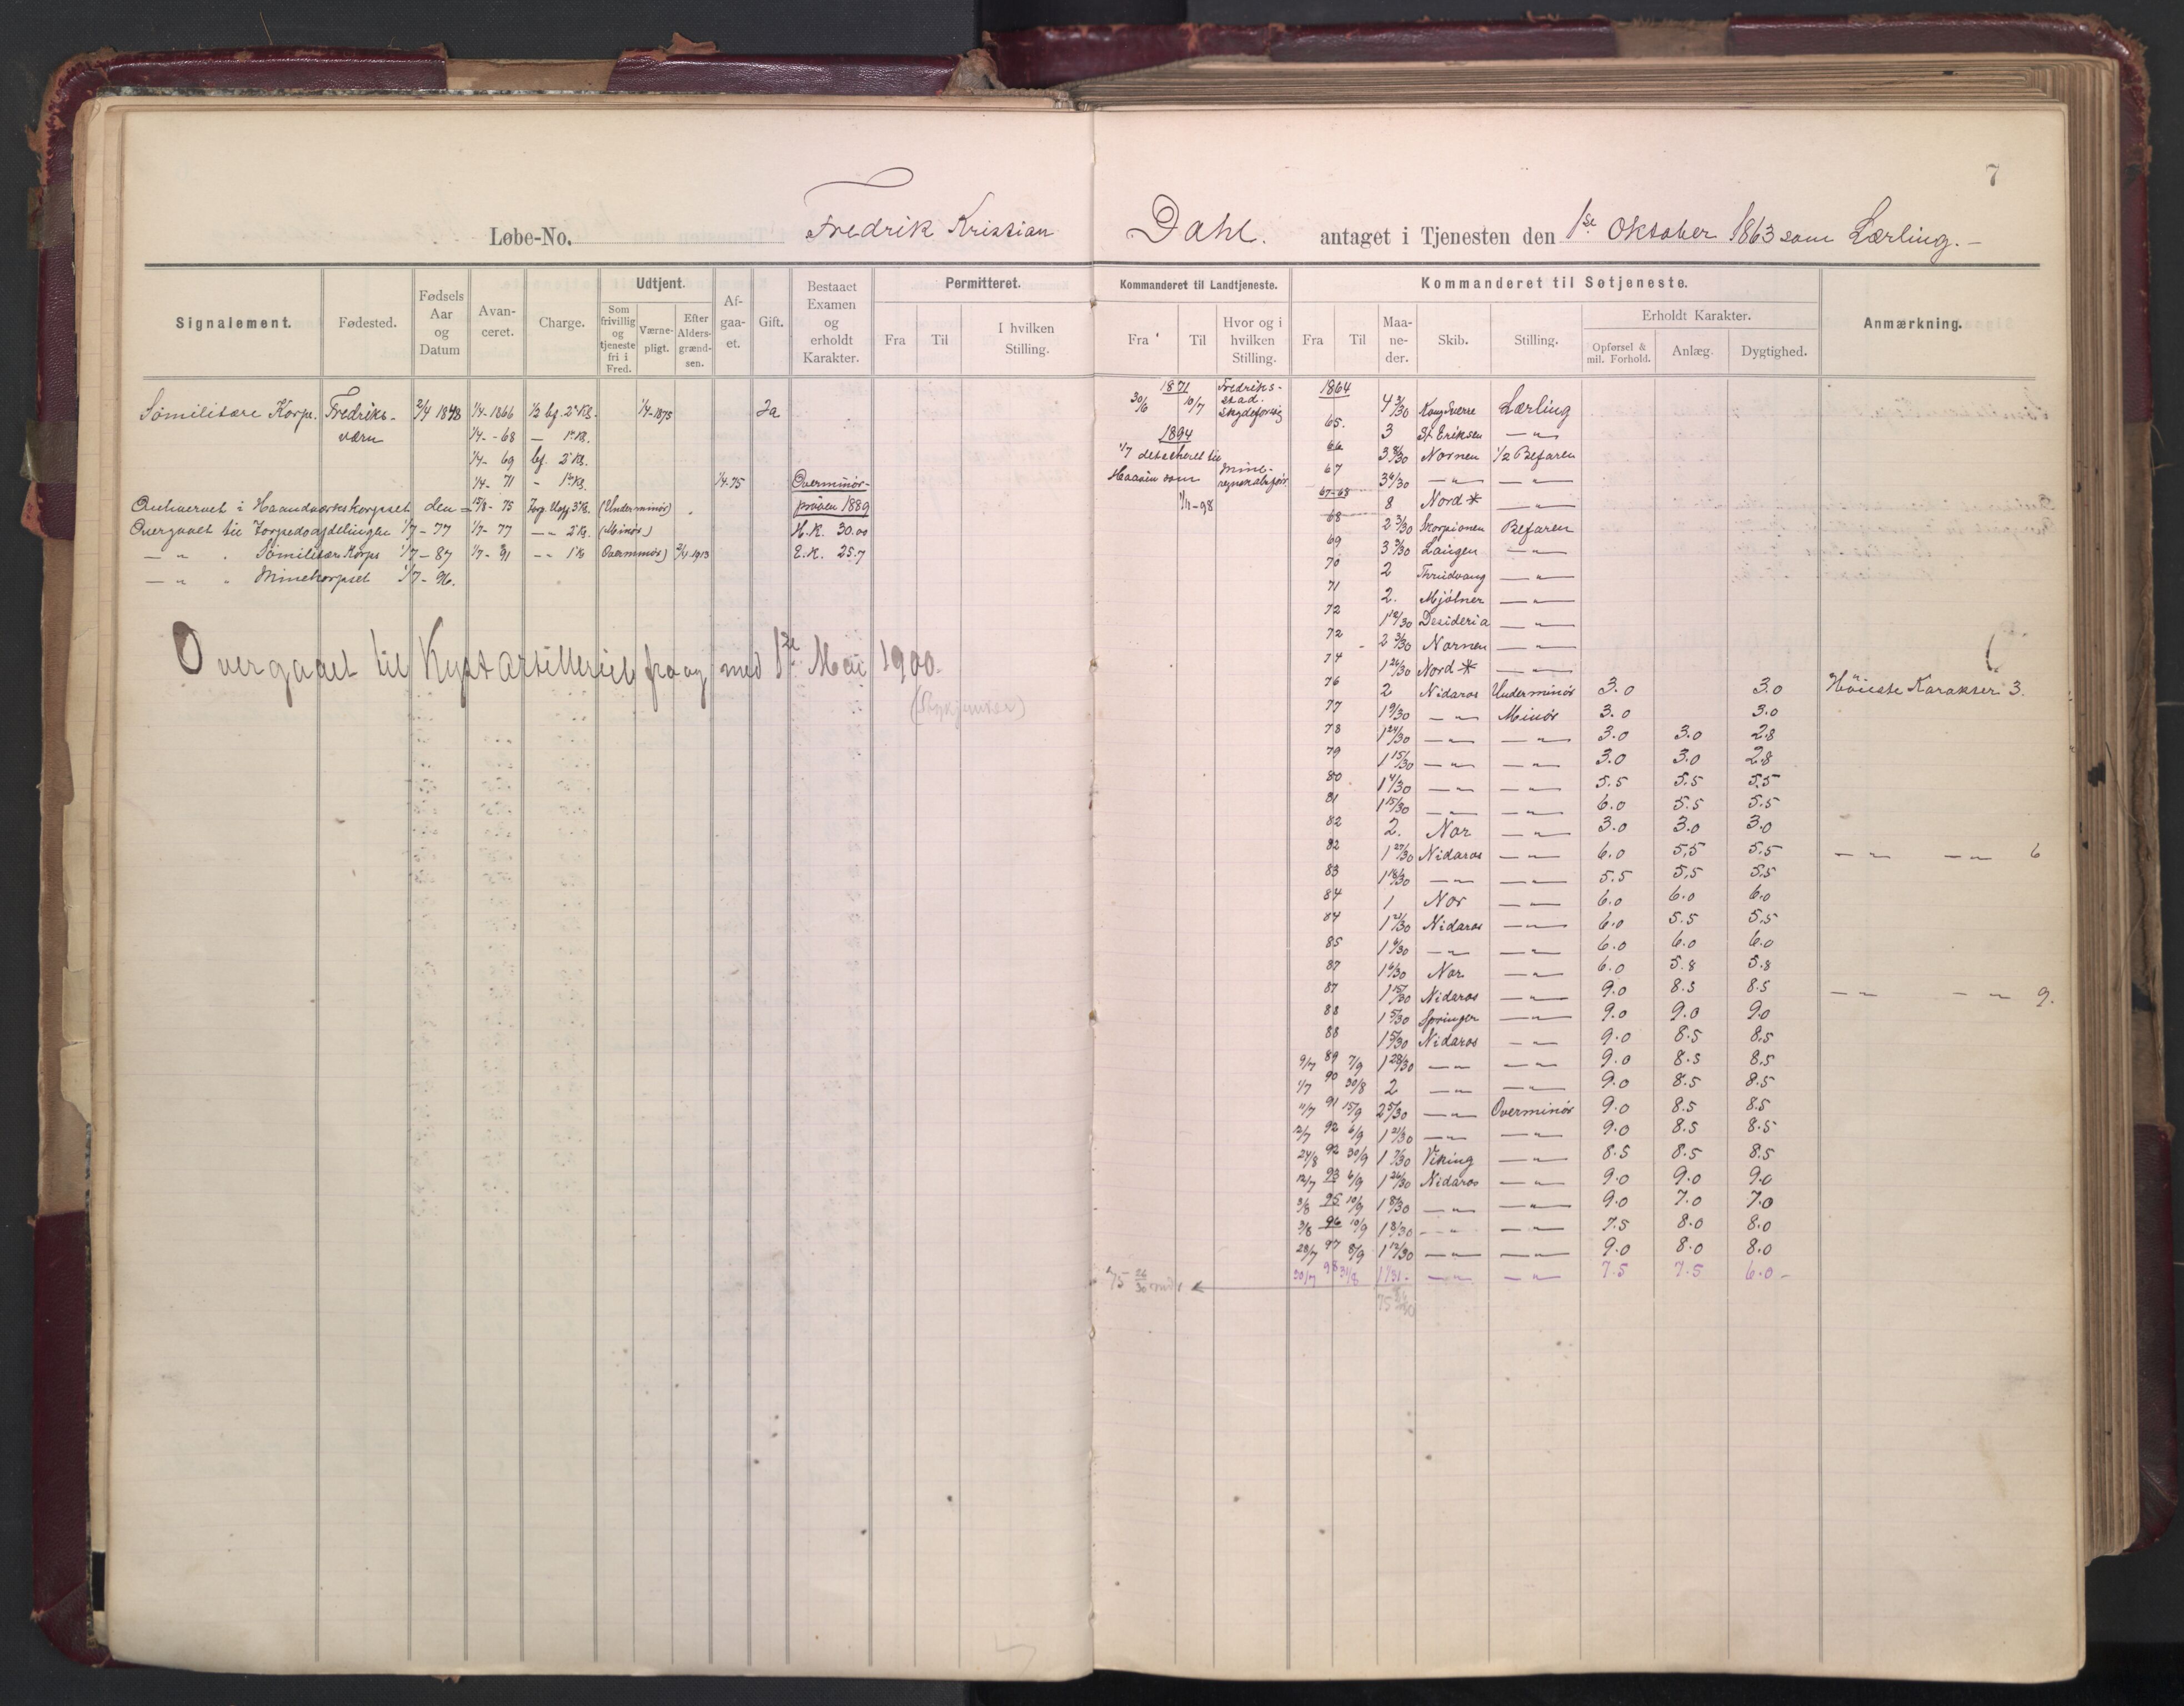 7
Løbe-No. Fredrik Kristian Dahl. antaget i Tjenesten den 1ste Oktober 1863 som Lærling.-
Signalement. Fødested. Fødsels Aar og Datum Avanceret. Charge. Udtjent. Afgaaet. Gift. Bestaaet Examen og erholdt Karakter. Permitteret.
Som frivillig og tjeneste fri i Fred. Værnepligt. Efter Aldersgrændsen. Fra Til I hvilken Stilling.
Sömilitære Korps. Fredriksværn 2/4 1848 1/4-1866 1/2 bf. 2' Kl. 1/4-1875 Ja
1/4--68 — 1' Kl.
1/4- 69 bf. 2' Kl.
1/4- 71 - 1' Kl. 1/4.75 Overminör-
Anhvervet i Haandværkskorpset den 15/8- 75 3' Kl. (Underminör) pröven 1889
Overgaaet til Torpedoafdelingen 1/7-77 1/7-77 — 2' Kl. (Minör) H.K. 30.00
— " . Sömilitære Korps 1/7-87 1/7-91 -- 1' Kl Overminör) 2/4 1913 E.K. 25.7
— " " Minekorpset 1/7-96.
Overgaaet til Kystartilleriet fra og med 1ste Mai 1900.
Kommanderet til Landtjeneste. Kommanderet til Søtjeneste. Anmærkning.
Fra Til Hvor og i hvilken Stilling. Fra Til Maaneder. Skib. Stilling. Erholdt Karakter.
Opførsel & mil. Forhold. Anlæg. Dygtighed.
1871 Fredriks-
30/6 10/7 stad.
1894
1/7 detacheret til
som Mine-
1/11-98
1864 4 3/30 Kong Sverre Lærling
65. 3 St Eriksen — " —
66 Nornen 1/2 Befaren
67 — " — — " —
67-68 8 Nord * — " —
68 2 3/30 Skorpionen Befaren
69 Laugen — " —
70 2 Thrudvang — " —
71 2. Mjölner — " —
72 Desideria — " —
72 Nornen — " —
74 Nord * — " —
76 2 Nidaros Underminör 3.0 3.0 Höieste Karakter 3.
77 1 9/30 — " — Minör 3.0 3.0
78 1 24/30 — " — — " — 3.0 3.0 2.8
79 1 15/30 — " — — " — 3.0 3.0 2.8
80 1 4/30 — " — — " — 5.5 5.5 5.5
81 1 15/30 — " — — " — 6.0 5.5 5.5
82 2. Nor — " — 3.0 3.0 3.0
82 1 27/30 Nidaros — " — 6.0 5,5 5.5 — " — — " — 6
83 1 18/30 — " — — " — 5.5 5,5 5,5
84 1 Nor — " — 6.0 6.0 6.0
84 1 21/30 Nidaros — " — 6.0 5.5 5.5
85 1 6/30 — " — — " — 6.0 6.0 6.0
87 1 6/30 Nor — " — 6.0 5.8 5.8
87 1 15/30 Nidaros — " — 9.0 8.5 8.5 — " — — " — 9.
88 1 5/30 Springer — " — 9.0 9.0 9.0
88 Nidaros — " — 9.0 8.5 8.5
9/7 89 7/9 1 28/30 — " — — " — 9.0 8.5 8.5
1/7 90 30/8 2 — " — — " — 9.0 8.5 8.5
11/7 91 15/9 2 5/30 — " — Overminör 9.0 8.5 8.5
12/7 92 6/9 — " — — " — 9.0 8.5 8.5
24/8 92 30/9 1 7/30 Viking — " — 8.5 8.5 8.5
12/7 93 6/9 1 26/30 Nidaros — " — 9.0 9.0 9.0
3/8 95 10/9 1 8/30 — " — — " — 9.0 7.0 7.0
3/8 96 10/9 1 8/30 — " — — " — 7.5 8.0 8.0
28/7 97 8/9 1 12/30 — " — — " — 9.0 8.0 8.0
30/7 98 31/8 — " — — " — 7.5 7.5 6.0 -
75 26/30